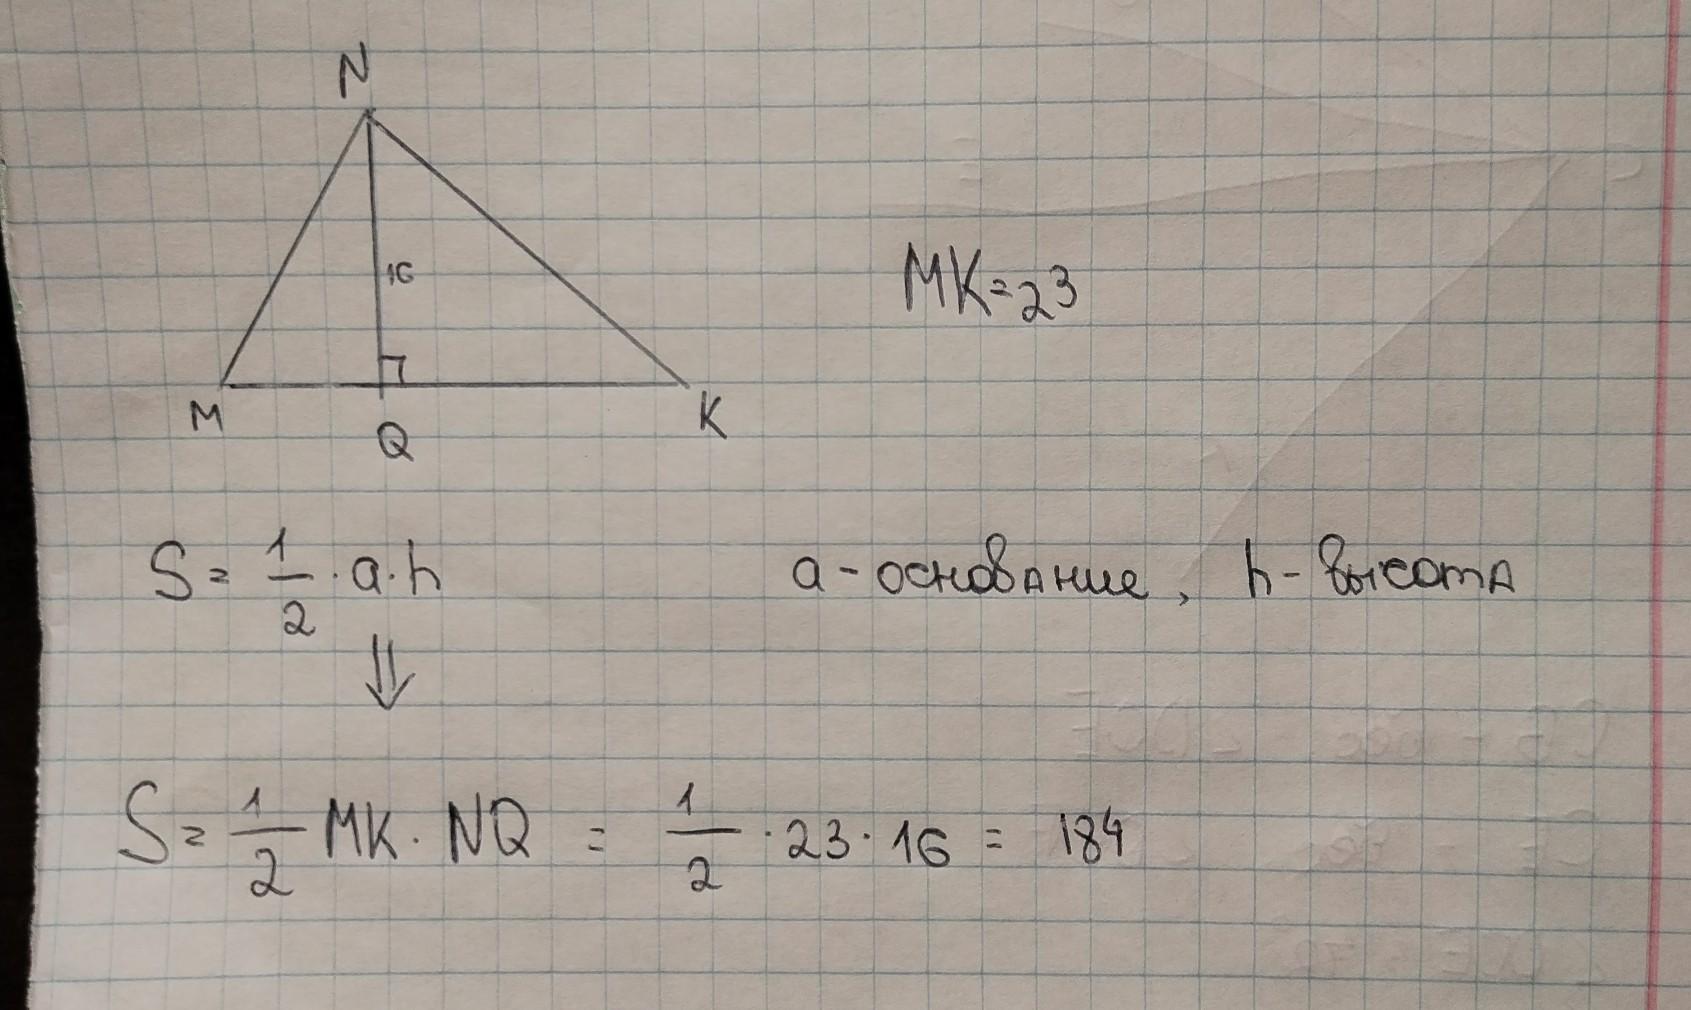 N
16
MK=23
M
K
Q
S = 1/2 · a · h
a - основание, h - высота
⇓
S = 1/2 MK · NQ = 1/2 · 23 · 16 = 184